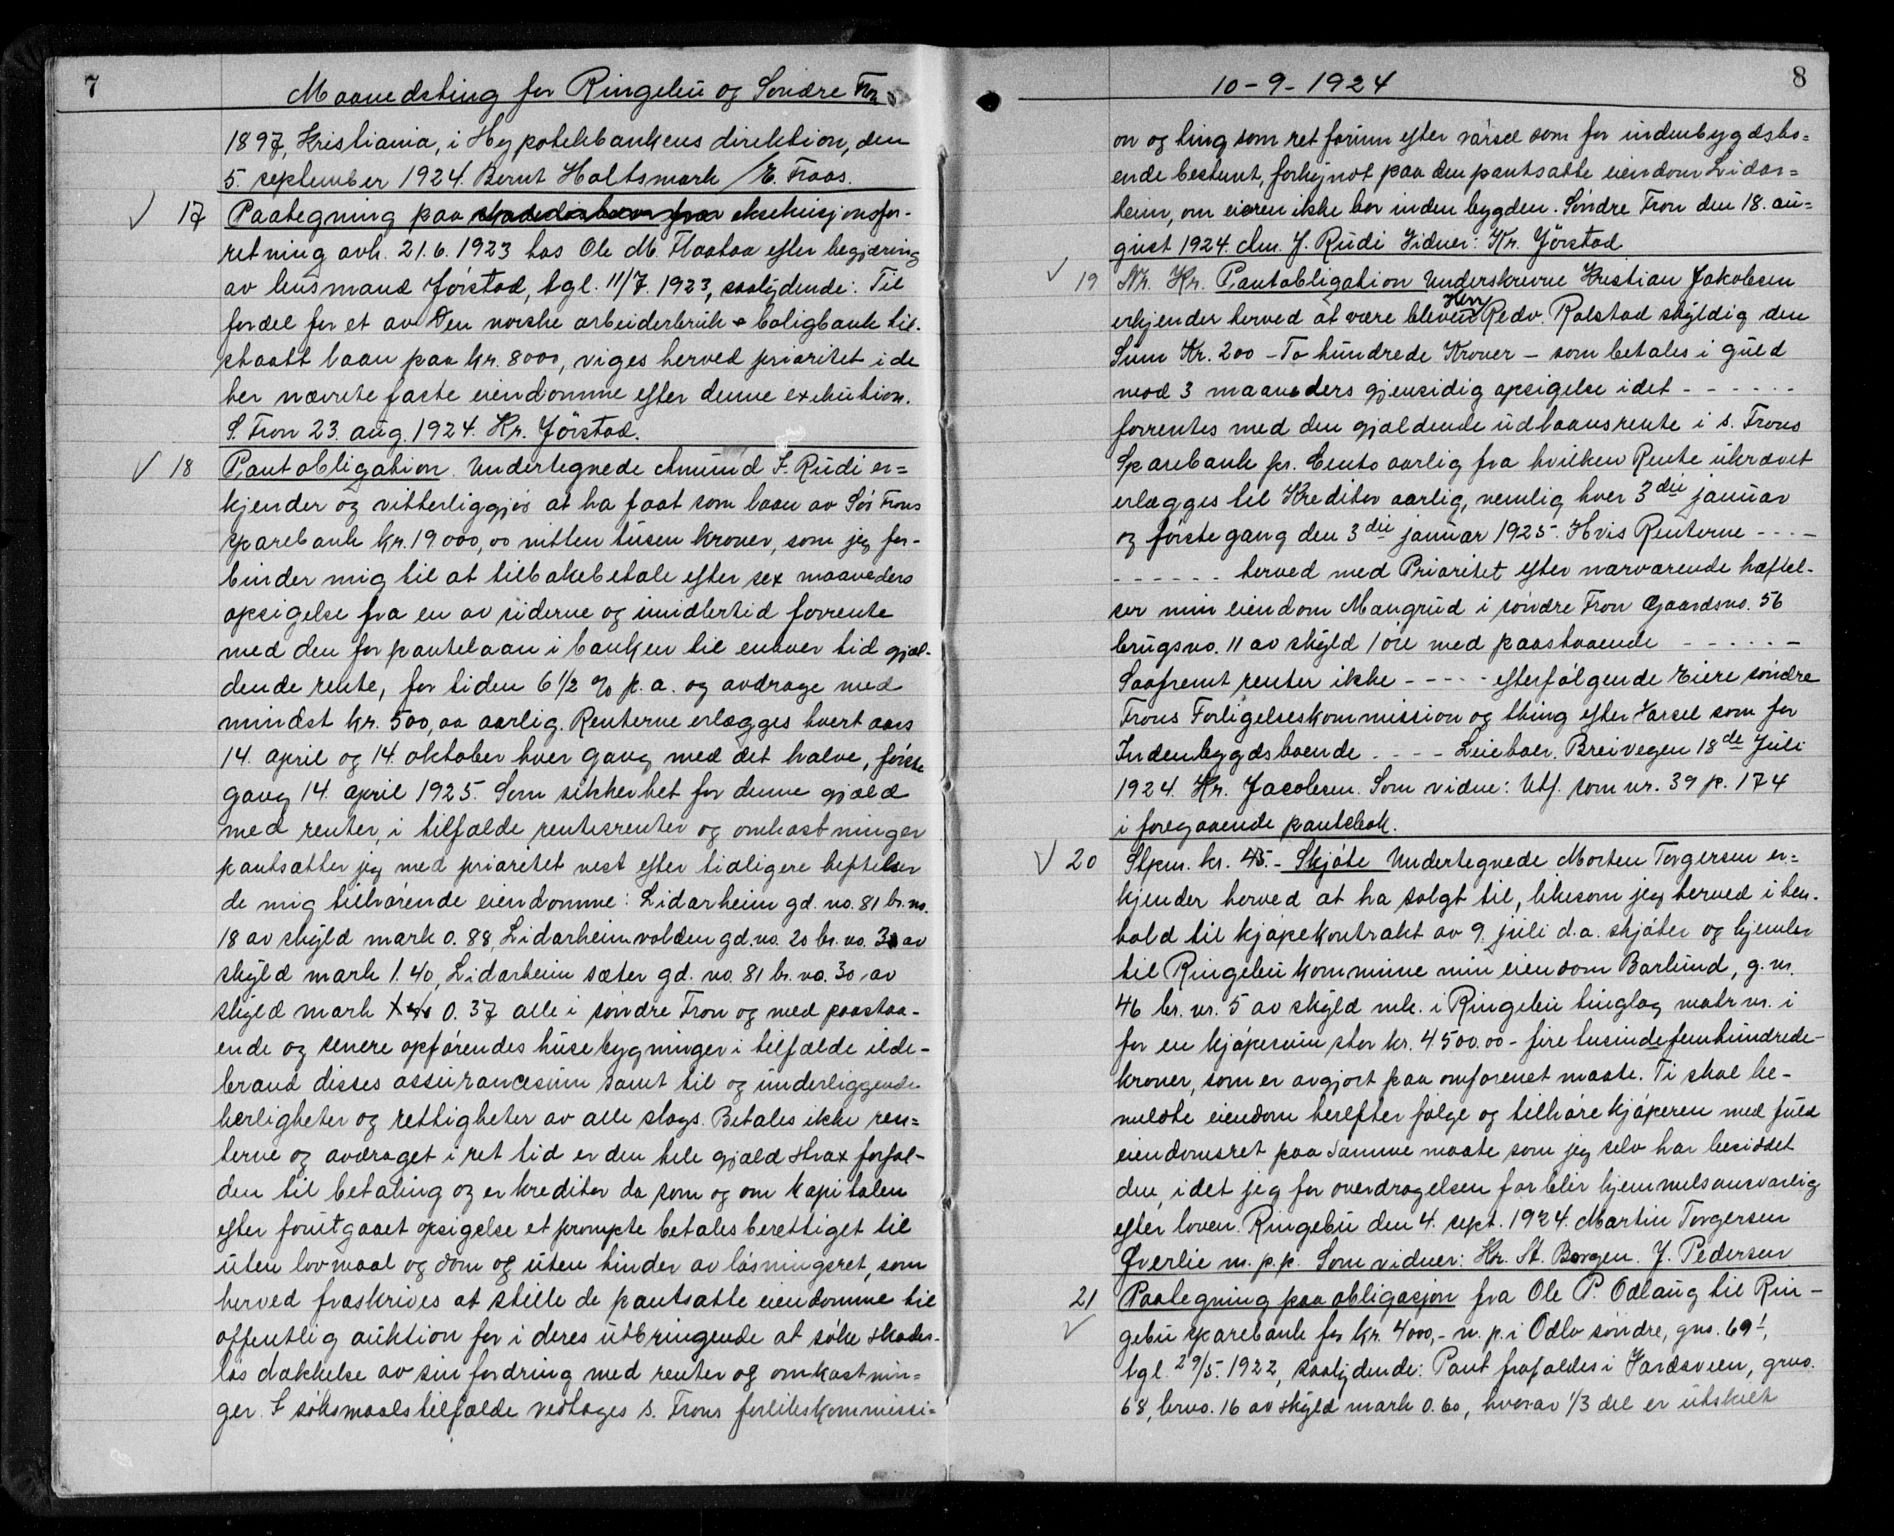 7
Maanedsting for Ringebu og Søndre Fron
1897, Kristiania, i Hypotekbankens direktion, den
5. september 1924. Bernt Holtsmark / E. Traas.
17 Paategning paa eksekusjonsfor-
retning avh. 21.6.1923 hos Ole M. Flaataa efter begjæring
av lensmand Jørstad, tgl. 11/7. 1923, saalydende: Til
fordel for et av Den norske arbeiderbruk & boligbank til-
staatt laan paa kr. 8000, viges herved prioritet i de
her nævnte faste eiendomme efter denne exekution.
S. Fron 23. aug. 1924. Kr. Jørstad.
18 Pantobligation. Undertegnede Amund J. Rudi er=
kjender og vitterliggjør at ha faat som laan av Sør Frons
sparebank kr. 19000,00 nitten tusen kroner, som jeg for-
binder mig til at tilbakebetale efter sex maaneders
opsigelse fra en av siderne og imidlertid forrente
med den for pantelaan i banken til enhver tid gjæl-
dende rente, for tiden 6 1/2 % p.a. og avdrage med
mindst kr. 500,00 aarlig. Renterne erlægges hvert aars
14. april og 14. oktober hver gang med det halve, første
gang 14. april 1925. Som sikkerhet for denne gjæld
med renter, i tilfælde rentesrenter og omkostninger
pantsætter jeg med prioritet nest efter tidligere heftelser
de mig tilhørende eiendomme: Lidarheim gd. no. 81 br. no.
18 av skyld mark 0.88 Lidarheimvolden gd. no. 20 br. no. 30 av
skyld mark 1.40, Lidarheim sæter gd. no. 81 br. no. 30 av
skyld mark 0.37 alle i søndre Fron og med paastaa-
ende og senere opførendes husebygninger i tilfælde ilde-
brand disses assurancesum samt til og underliggende
herligheter og rettigheter av alle slags. Betales ikke ren=
terne og avdraget i ret tid er den hele gjæld strax forfal-
den til betaling og er kreditor da som og om kapitalen
efter forutgaaet opsigelse ei prompte betales berettiget til
uten lovmaal og dom og uten hinder av løsningsret, som
herved fraskrives at stille de pantsatte eiendomme til
offentlig auktion for i deres utbringende at søke skades-
løs dækkelse av sin fordring med renter og omkostnin=
ger. I søksmaalstilfælde vedtages s. Frons forlikskommissi=
10-9-1924
8
on og ting som ret forum efter varsel som for indenbygdsbo=
ende bestemt, forkyndt paa den pantsatte eiendom Lidar=
heim, om eieren ikke bor inden bygden. Søndre Fron den 18. au=
gust 1924. Am. J. Rudi Vidner: Kr. Jørstad
19 Nr. Kr. Pantobligation Underskrevne Kristian Jakobsen
erkjender herved at være bleven Herr Redv. Rolstad skyldig den
Sum Kr. 200 - To hundrede Kroner - som betales i guld
mod 3 maaneders gjensidig opsigelse idet - - - - - -
forrentes med den gjældende udlaansrente i s. Frons
Sparebank pr. Cento aarlig fra hvilken Rente ukrævet
erlægges til Kreditor aarlig, nemlig hver 3die januar
og første gang den 3die januar 1925. Hvis Renterne - - - -
- - - - - - herved med Prioritet efter nærværende hæftel-
ser min eiendom Maugrud i søndre Fron Gaardsno. 56
brugsno. 11 av skyld 1 øre med paastaaende - - - - - -
Saafremt renter ikke - - - - efterfølgende Eiere søndre
Frons Forligelseskommission og thing efter Varsel som for
Indenbygdsboende - - - - Leieboer. Breivegen 18de Juli
1924. Kr. Jacobsen. Som vidne: Utf. som nr. 39 p. 174
i foregaaende pantebok.
20 Stpm. kr. 45.- Skjøte Undertegnede Morten Torgersen er=
kjender herved at ha solgt til, likesom jeg herved i hen-
hold til kjøpekontrakt av 9. juli d.a. skjøter og hjemler
til Ringebu kommune min eiendom Barlund, g. nr.
46 br. nr. 5 av skyld mk. i Ringebu tinglag matr nr. i
for en kjøpesum stor kr. 4500.00 - fire tusindefemhundrede-
kroner, som er avgjort paa omforenet maate. Ti skal be-
meldte eiendom herefter følge og tilhøre kjøperen med fuld
eiendomsret paa samme maate som jeg selv har besiddet
den, idet jeg for overdragelsen forblir hjemmelsansvarlig
efter loven. Ringebu den 4. sept. 1924. Martin Torgersen
Øverlie m. p. p. Som vidner: Kr. St. Borgen. J. Pedersen
21 Paategning paa obligasjon fra Ole P. Odlaug til Rin-
gebu sparebank for kr. 4000,- m. p. i Odlo søndre, gno. 69 1,
tgl. 29/5. 1922, saalydende: Pant frafaldes i Jordsveen, grno.
68, brno. 16 av skyld mark 0.60, hvorav 1/3 del er utskilt